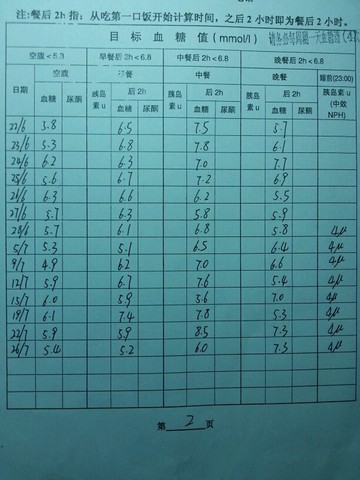 注:餐后 2h 指：从吃第一口饭开始计算时间，之后 2 小时即为餐后 2 小时。
目 标 血 糖 值 ( mmol/l )
空腹＜5.3 早餐后 2h＜6.8 中餐后 2h＜6.8 晚餐后 2h＜6.8
日期 空腹 早餐 中餐 晚餐 睡前(23:00)
血糖 尿酮 胰岛素 u 后 2h 胰岛素 u 后 2h 胰岛素 u 后 2h 胰岛素 u (中效 NPH)
血糖 尿酮 血糖 尿酮 血糖 尿酮
22/6 5.8 6.5 7.5 5.7
23/6 5.3 6.8 7.8 6.1
24/6 6.2 6.3 7.0 7.7
25/6 5.6 6.7 7.2 6.9
26/6 6.3 6.6 6.2 5.5
27/6 5.7 6.3 5.8 5.9
28/6 5.7 6.1 6.8 5.8 4u
5/7 5.3 5.1 6.5 6.4 4u
9/7 4.9 6.2 7.0 6.6 4u
12/7 5.9 6.7 7.6 5.4 4u
15/7 6.0 5.9 5.6 7.0 4u
19/7 6.1 7.4 7.8 5.3 4u
22/7 5.9 5.9 8.5 7.3 4u
26/7 5.4 5.2 6.0 7.3 4u
第 2 页